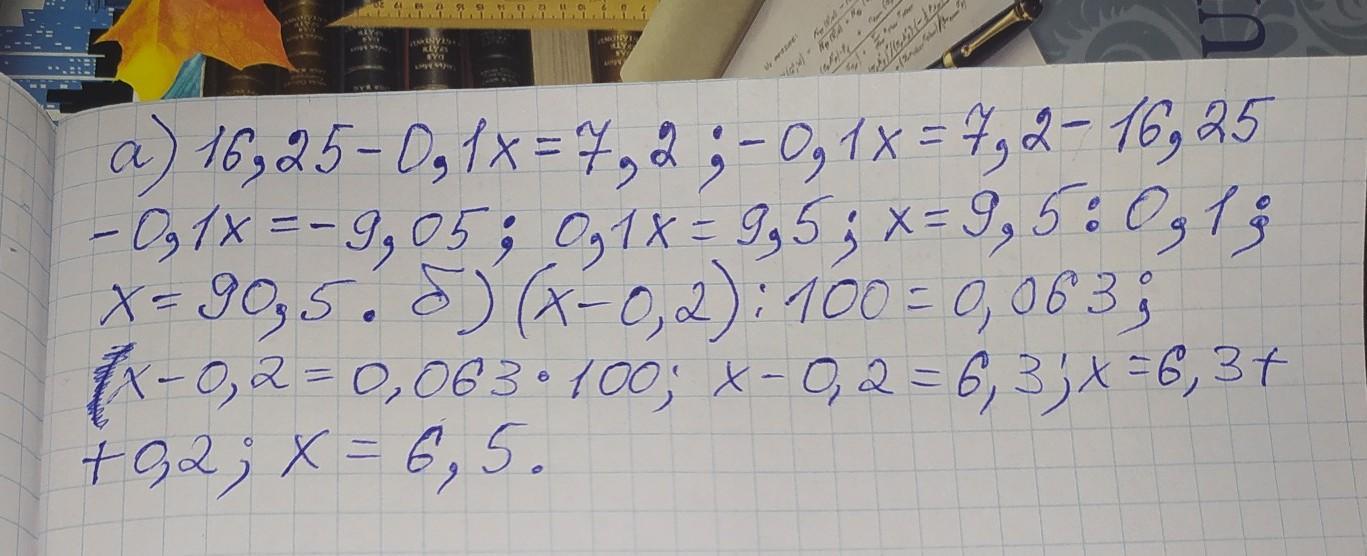 а) 16,25-0,1x=7,2;-0,1x=7,2-16,25
-0,1x=-9,05; 0,1x=9,5; x=9,5:0,1;
x=90,5. б) (x-0,2):100=0,063;
x-0,2=0,063·100; x-0,2=6,3; x=6,3+
+0,2; x=6,5.